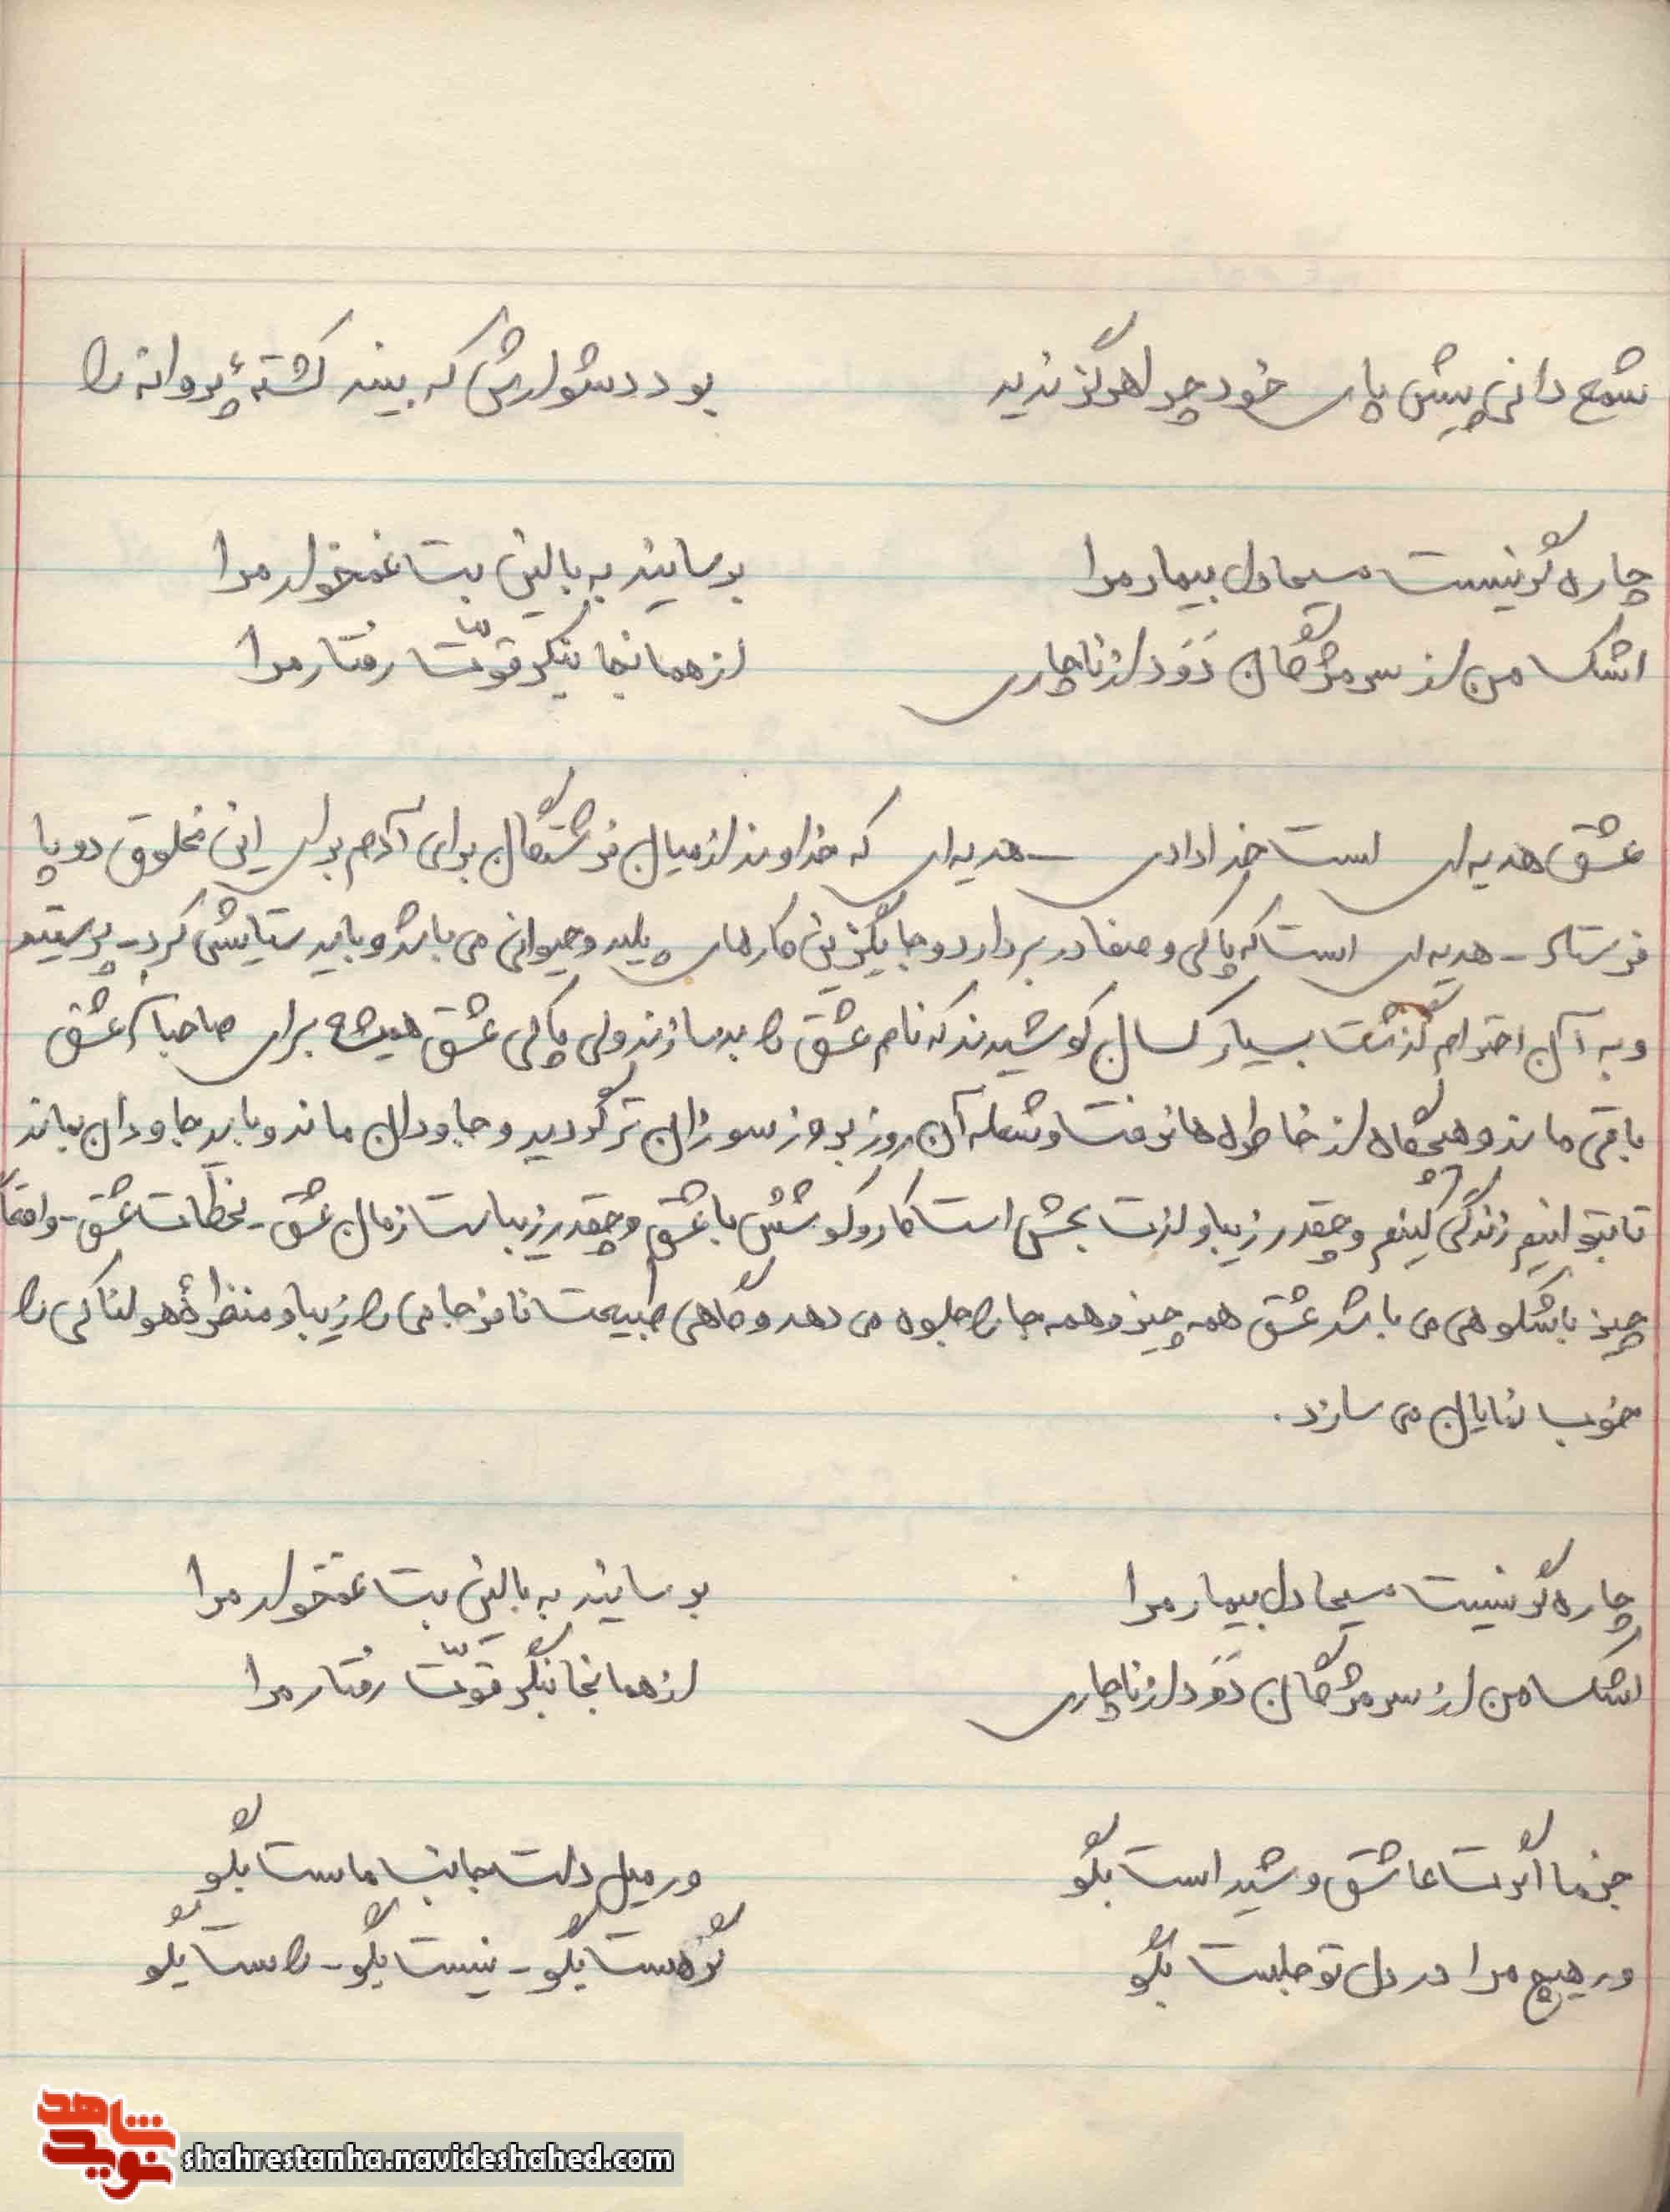 شمع دانی پیش پای خود چرا هرگز ندید    بود دشوارش که بیند کشتهٔ پروانه را
چاره گر نیست مسیحا دل بیمار مرا    برسانید به بالین بت غمخوار مرا
اشک من از سر مژگان نَوَد از ناچاری    از همانجا بنگر قوّت رفتار مرا
عشق هدیه ای است خدادادی - هدیه ای که خداوند از میان فرشتگان برای آدم برای این مخلوق دو پا
فرستاد - هدیه ای است که پاکی و صفا در بر دارد و جایگزین کارهای پلید و حیوانی می باشد و باید ستایش کرد - پرستید
و به آن احترام گذاشت بسیار کسان کوشیدند که نام عشق را بد سازند ولی پاکی عشق همیشه برای صاحبان عشق
باقی ماند و هیچگاه از خاطره ها نرفت و شعله آن روز بروز سوزان تر گردید و جاودان ماند و باید جاودان بماند
تا بتوانیم زندگی کنیم و چقدر زیبا و لذت بخش است کار و کوشش با عشق و چقدر زیباست زمان عشق - لحظات عشق - واقعاً
چیز باشکوهی می باشد عشق همه چیز و همه جا را جلوه می دهد و گاهی طبیعت نافرجامی را زیبا و منظرهٔ هولناکی را
خوب نمایان می سازد .
چاره گر نیست مسیحا دل بیمار مرا    برسانید به بالین بت غمخوار مرا
اشک من از سر مژگان نَوَد از ناچاری    از همانجا بنگر قوّت رفتار مرا
جز ما اگرت عاشق و شیداست بگو    ور میل دلت بجانب ماست بگو
ور هیچ مرا در دل تو جاست بگو    گر هست بگو - نیست بگو - راست بگو
شاهد
نوید
shahrestanha.navideshahed.com